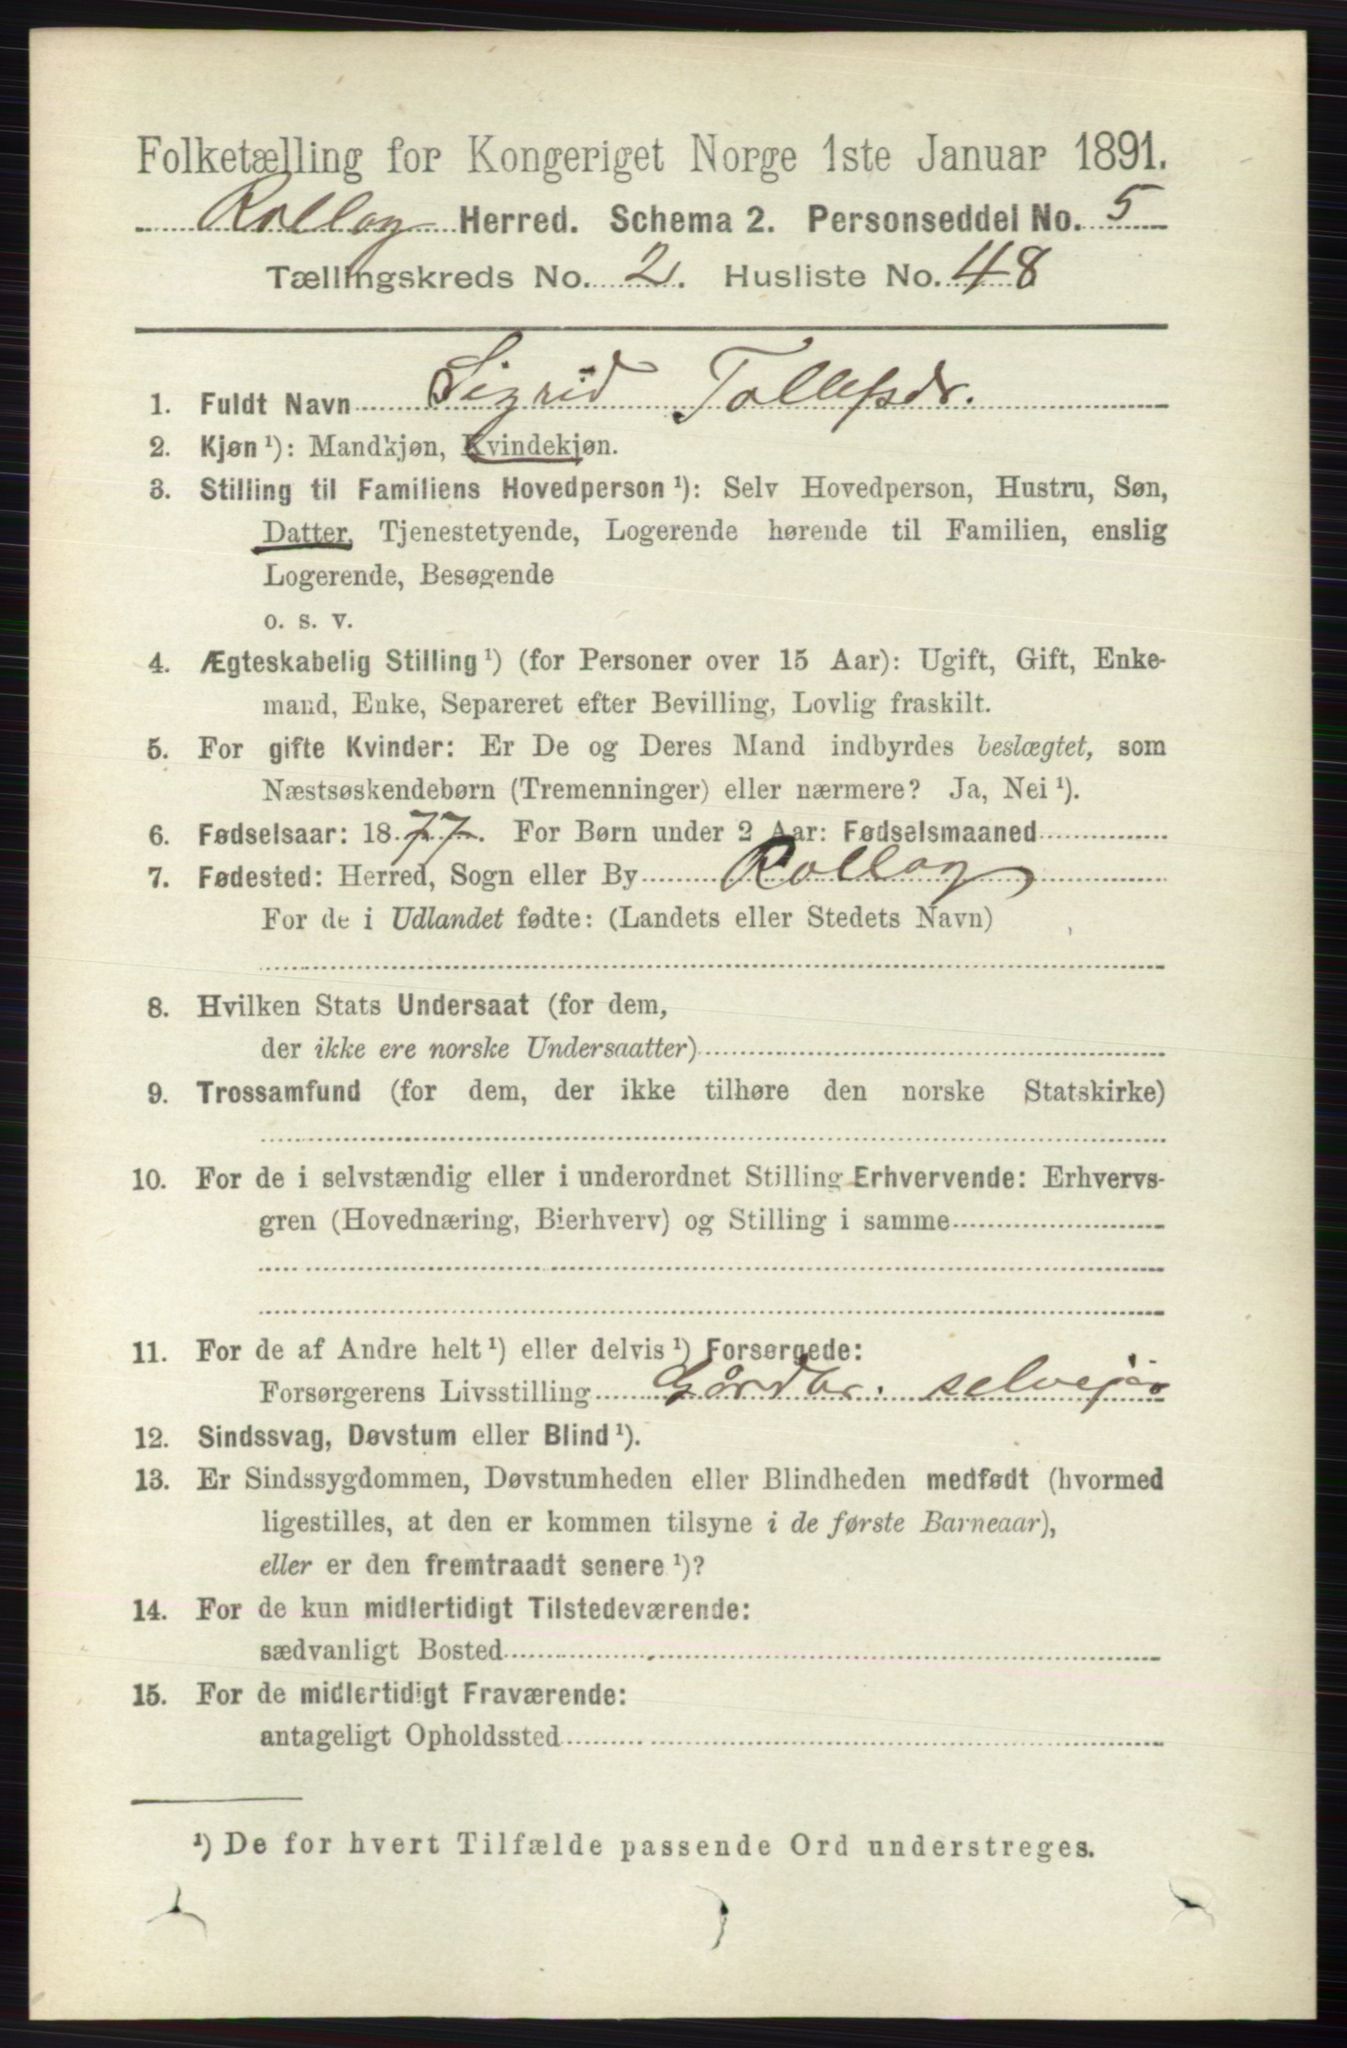 Folketælling for Kongeriget Norge 1ste Januar 1891.
Rollag Herred. Schema 2. Personseddel No. 5
Tællingskreds No. 2. Husliste No. 48
1. Fuldt Navn Sigrid Tollefsdr.
2. Kjøn ¹): Mandkjøn, Kvindekjøn.
3. Stilling til Familiens Hovedperson ¹): Selv Hovedperson, Hustru, Søn,
Datter, Tjenestetyende, Logerende hørende til Familien, enslig
Logerende, Besøgende
o. s. v.
4. Ægteskabelig Stilling ¹) (for Personer over 15 Aar): Ugift, Gift, Enke-
mand, Enke, Separeret efter Bevilling, Lovlig fraskilt.
5. For gifte Kvinder: Er De og Deres Mand indbyrdes beslægtet, som
Næstsøskendebørn (Tremenninger) eller nærmere? Ja, Nei ¹).
6. Fødselsaar: 1877. For Børn under 2 Aar: Fødselsmaaned
7. Fødested: Herred, Sogn eller By Rollag
For de i Udlandet fødte: (Landets eller Stedets Navn)
8. Hvilken Stats Undersaat (for dem,
der ikke ere norske Undersaatter)
9. Trossamfund (for dem, der ikke tilhøre den norske Statskirke)
10. For de i selvstændig eller i underordnet Stilling Erhvervende: Erhvervs-
gren (Hovednæring, Bierhverv) og Stilling i samme
11. For de af Andre helt ¹) eller delvis ¹) Forsørgede:
Forsørgerens Livsstilling Gårdbr. selvejer
12. Sindssvag, Døvstum eller Blind ¹).
13. Er Sindssygdommen, Døvstumheden eller Blindheden medfødt (hvormed
ligestilles, at den er kommen tilsyne i de første Barneaar),
eller er den fremtraadt senere ¹)?
14. For de kun midlertidigt Tilstedeværende:
sædvanligt Bosted
15. For de midlertidigt Fraværende:
antageligt Opholdssted
¹) De for hvert Tilfælde passende Ord understreges.